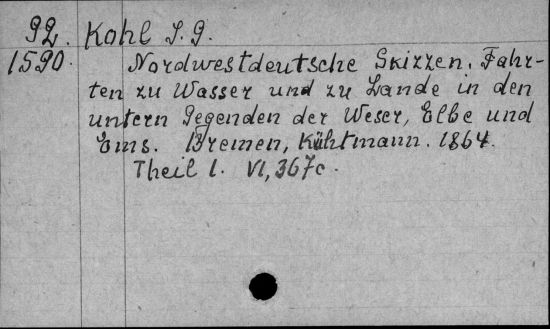 92. Kohl I. G.
1590. Nordwestdeutsche Skizzen. Fahr-
ten zu Wasser und zu Lande in den
untern Gegenden der Weser, Elbe und
Ems. Bremen, Kühtmann. 1864.
Theil I. VI, 367c.